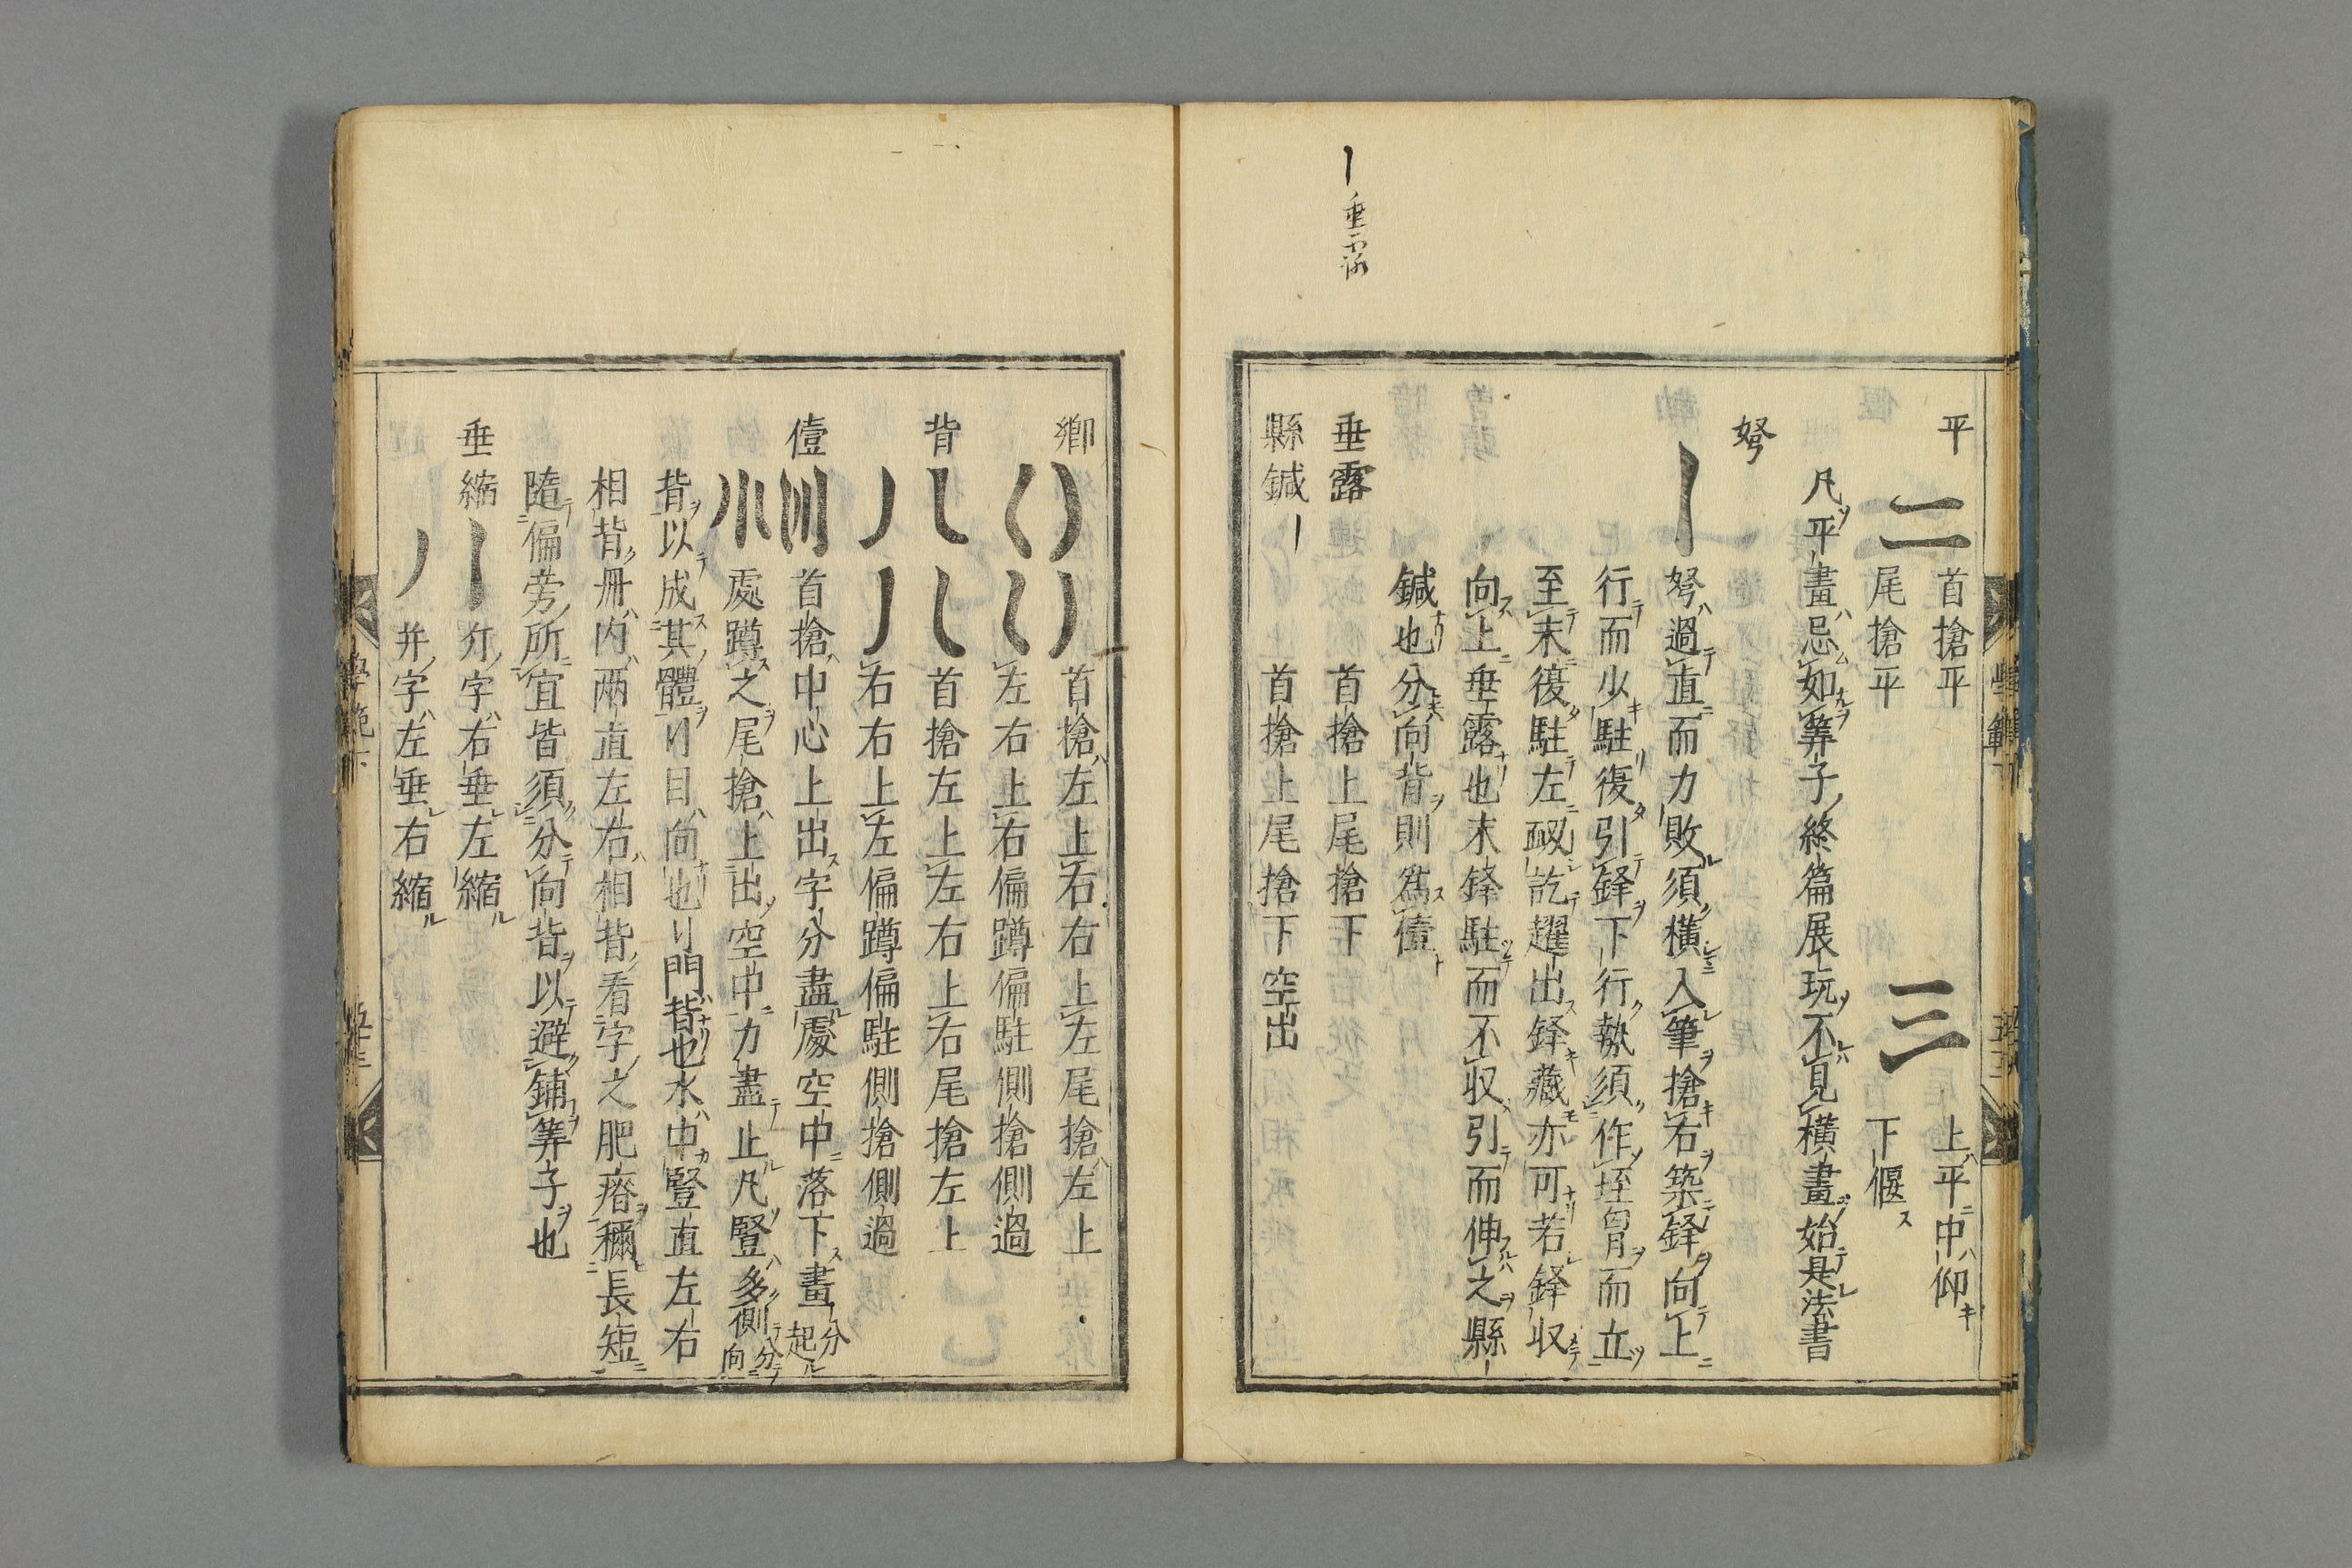 平 二 首搶平 三 上平中仰
尾搶平 下偃
凡平畫忌如筭子終篇展玩不見橫畫始是法書
努
丨 努過直而力敗須橫入筆搶右築鋒向上
行而少駐復引鋒下行執須作垤胷而立
至末復駐左衂訖趯出鋒藏亦可若鋒収
向上垂露也末鋒駐而不収引而伸之縣
鍼也分向背則為僼
垂露 首搶上尾搶下
縣鍼丨 首搶上尾搶下空出
丨垂露
鄉 首搶左上右右上左尾搶左上
左右上右偏蹲偏駐側搶側過
背 首搶左上左右上右尾搶左上
右右上左偏蹲偏駐側搶側過
首搶中心上出字分盡處空中落下畫分起
處蹲之尾搶上出空中力盡止凡豎多側分向
背以成其體刂目向也刂門背也水中豎直左右
相背冊内兩直左右相背看字之肥瘠稱長短
隨偏旁所宜皆須分向背以避鋪筭子也
垂縮 字右垂左縮
并字左垂右縮
學範下